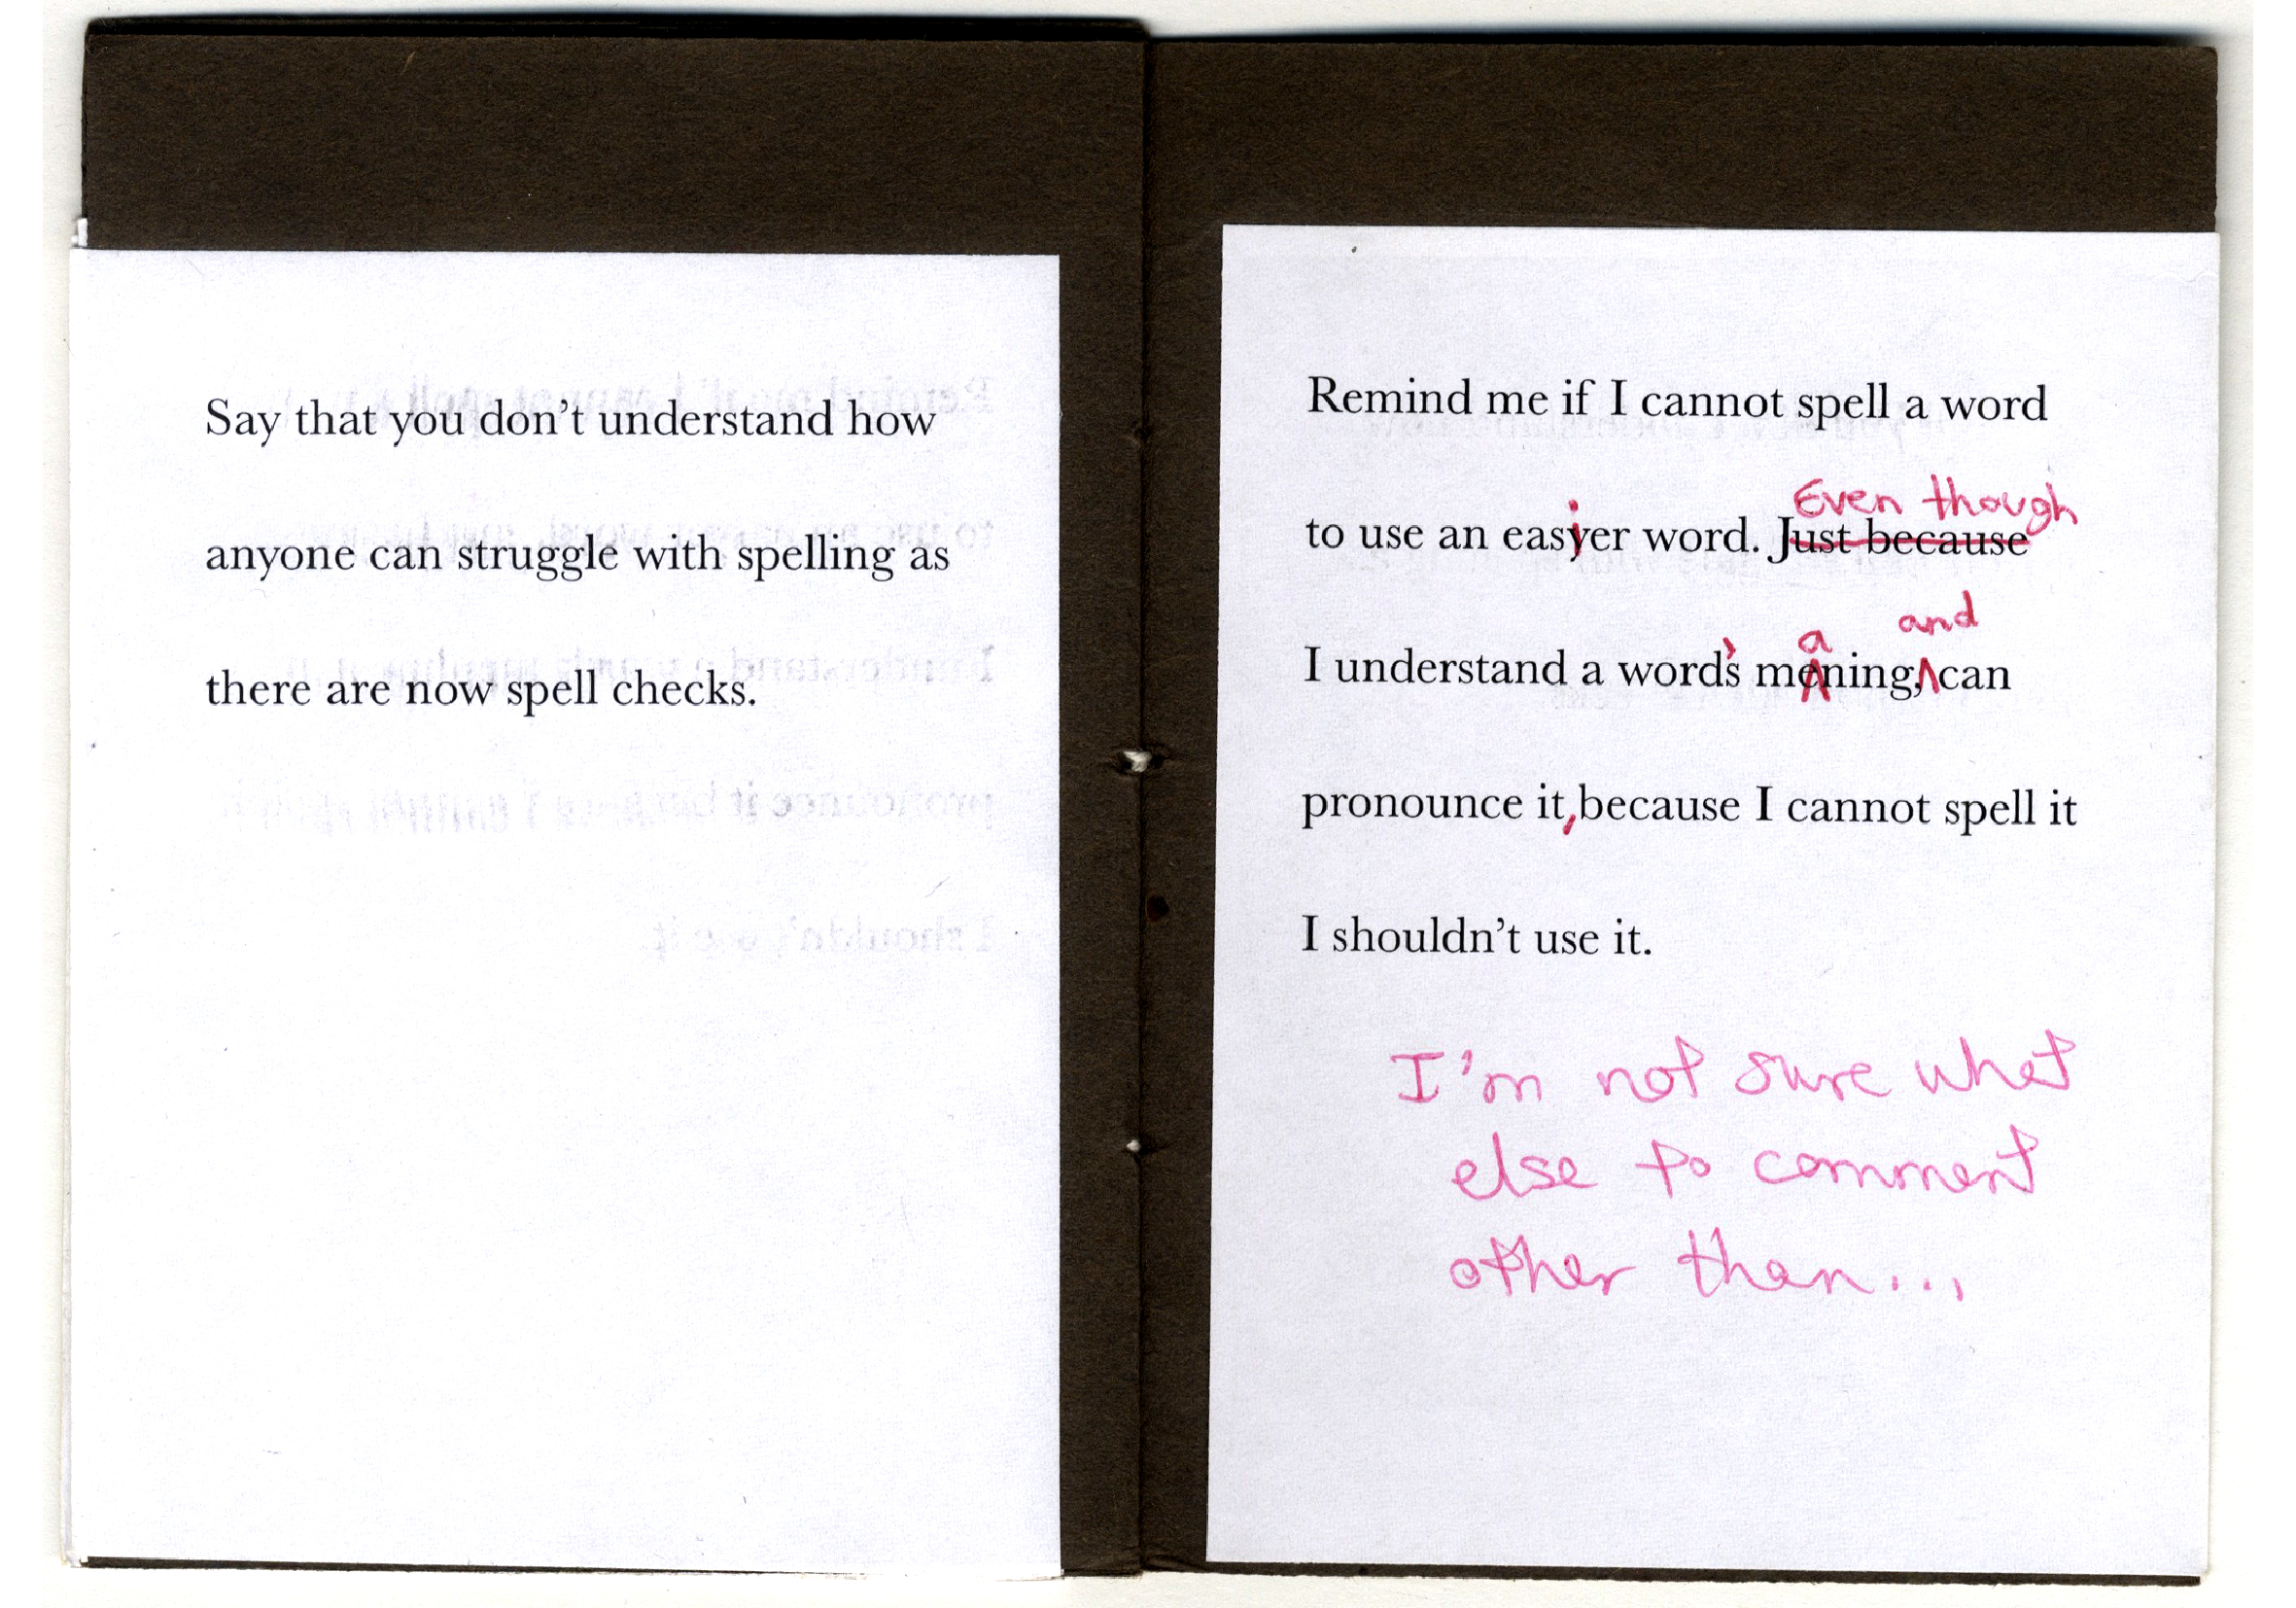 Say that you don't understand how
anyone can struggle with spelling as
there are now spell checks.
Remind me if I cannot spell a word
Even though
to use an easyer word. Just because
and
a
I understand a word's mening, can
pronounce it, because I cannot spell it
I shouldn't use it.
I'm not sure what
else to comment
other than...